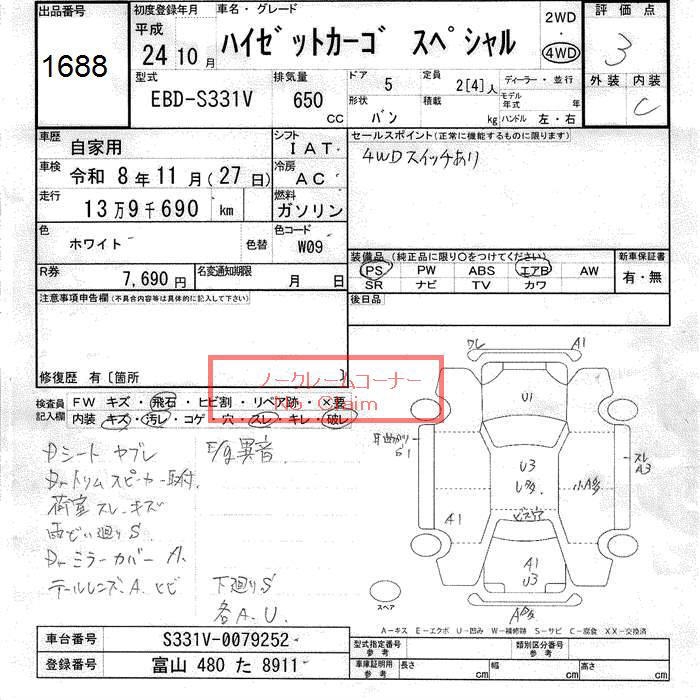 出品番号
1688
初度登録年月
平成
24年 10月
車名・グレード
ハイゼットカーゴ スペシャル
2WD
・
4WD
評価点
3
外装 内装
C
型式
EBD-S331V
排気量
650 CC
ドア
5
形状
バン
定員
2[4]人
積載
kg
ディーラー・並行
モデル年式 年
ハンドル 左・右
車歴
自家用
シフト
IAT
車検
令和 8年 11月(27日)
冷房
AC
走行
13万9千690 km
燃料
ガソリン
色
ホワイト
色替
色コード
W09
R券
7,690円
名変通知期限
月 日
セールスポイント(正常に機能するものに限ります)
4WDスイッチあり
装備品(純正品に限り○をつけてください)
PS PW ABS エアB AW
SR ナビ TV カワ
新車保証書
有・無
後日品
注意事項申告欄(不具合内容等は具体的に記入して下さい)
修復歴 有〔箇所 〕
ノークレームコーナー
No Claim
検査員記入欄
FW キズ・飛石・ヒビ割・リペア跡・×要
内装・キズ・汚レ・コゲ・穴・スレ・キレ・破レ
Dシート ヤブレ
E/g異音
Drトリムスピーカー取付
荷室スレ・キズ
雨どい廻りS
Drミラーカバー A.
テールレンズ.A.ヒビ
下廻りS
各A.U.
ワレ
A1
U1
耳曲がり
S1
U3
U多
ビス穴
スレ
A3
小A多
A1
A1
U3
A多
スペア
A-キズ E-エクボ U-凹み W-補修跡 S-サビ C-腐食 XX-交換済
車台番号
S331V-0079252
登録番号
富山 480 た 8911
型式指定番号
参考
類別区分番号
参考
車庫証明用
参考
長さ cm
幅 cm
高さ cm